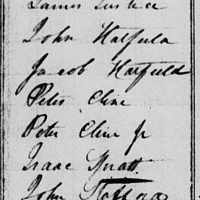 James Justice
John Hatfield
Jacob Hatfield
Peter Cline
Peter Cline Jr
Isaac
John